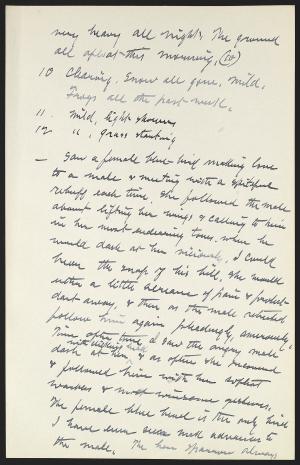 very heavy all night. The ground
all afloat this morning, (50)
10 Clearing, Snow all gone, mild,
Frogs all the past week.
11. Mild, light showers
12 " , grass starting
— Saw a female blue-bird making love
to a male & meeting with a spiteful
rebuff each time. She followed the male
about lifting her wings & calling to him
in her most endearing tones. when he
would dash at her viciously, I could
hear the snap of his bill, she would
utter a little utterance of pain & protest
dart away, & then as the male retreated
follow him again pleadingly, amorously.
Time after time, I saw the angry male
dash at her, & as often she renewed
& followed him with her softest
warbles & most winsome gestures.
The female blue bird is the only bird
I have ever seen make advances to
the male. The hen sparrow always